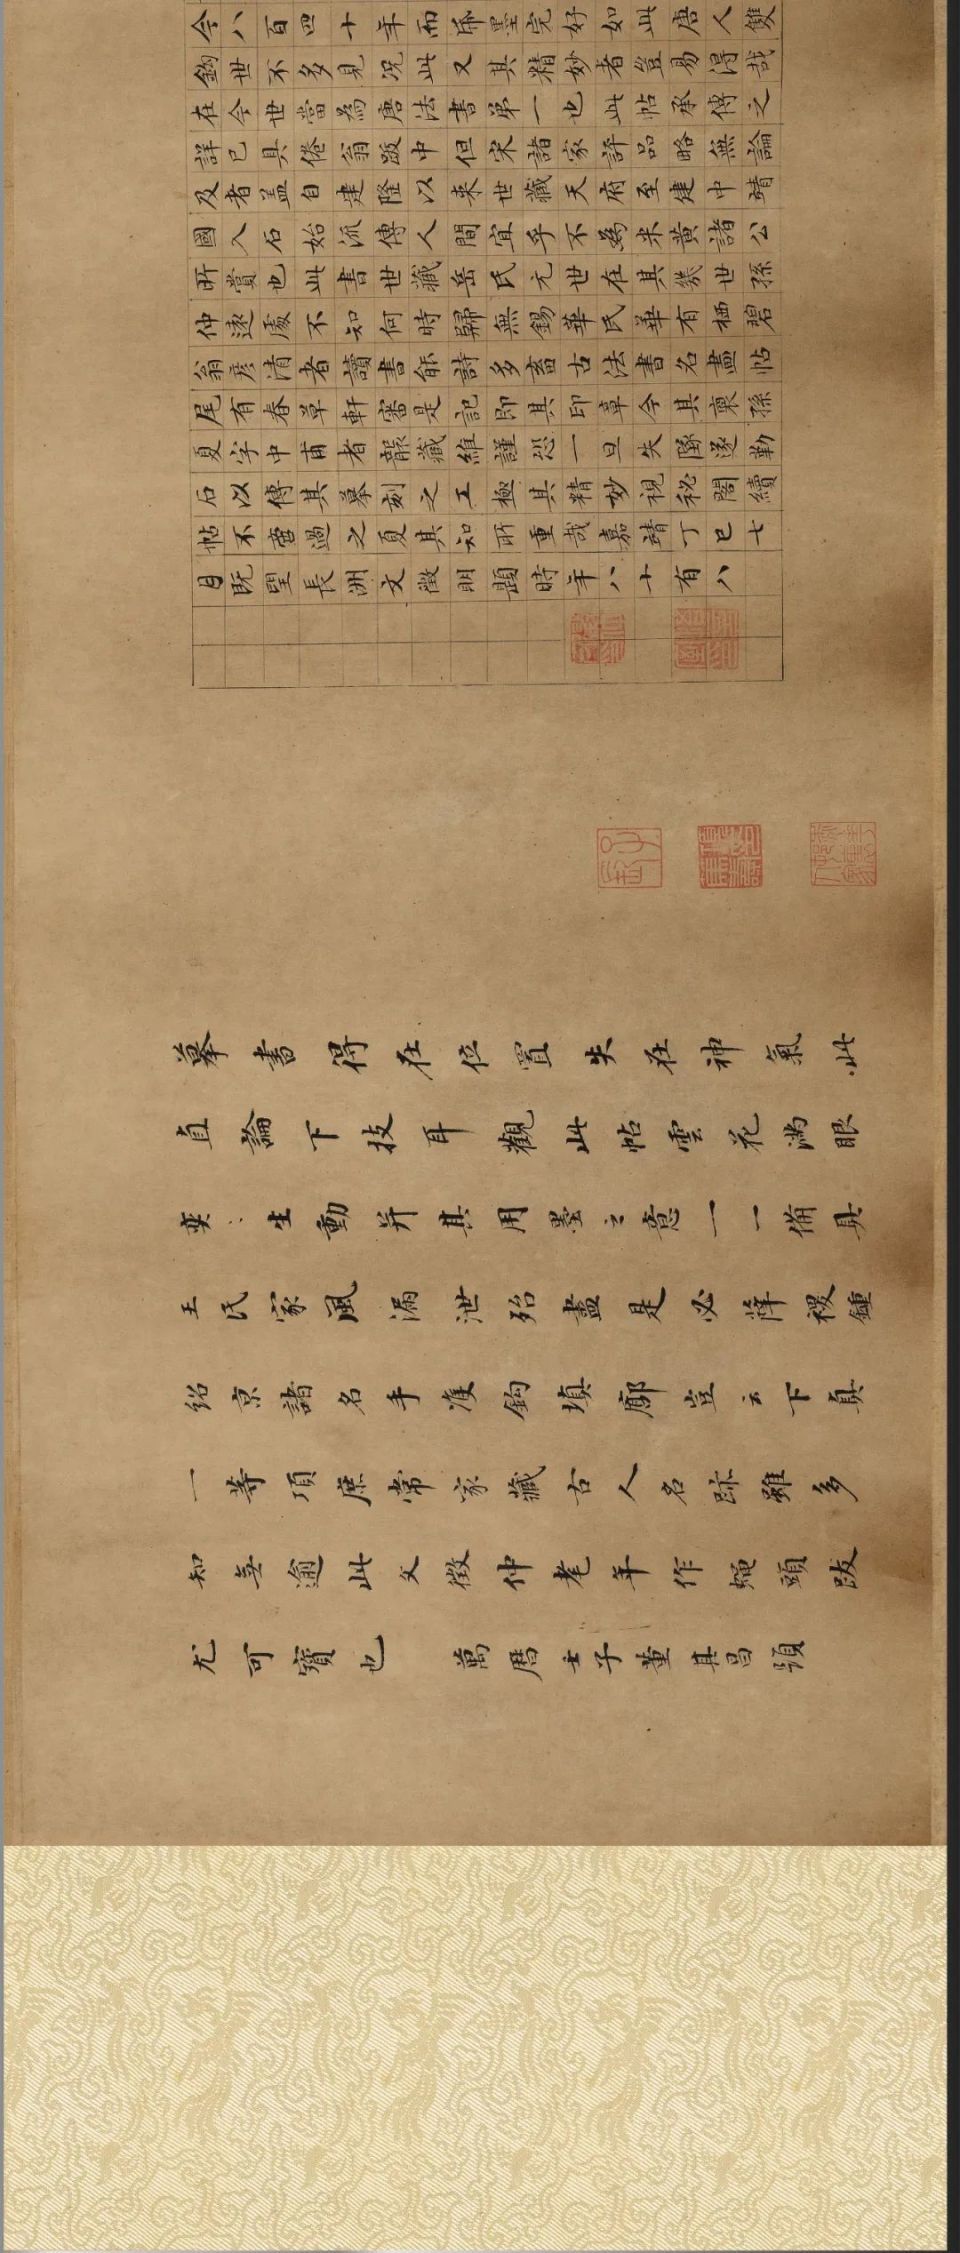 今八百四十年而帋墨完好如此唐人雙
鈎世不多見况此又其精妙者豈易得哉
在今世當為唐法書第一也此帖承傳之
詳已具倦翁跋中但宋諸家評品略無論
及者盖自建隆以来世藏天府至建中靖
國入石始流傳人間宜乎不為米黄諸公
所賞也此書世藏岳氏元世在其幾世孫
仲遠處不知何時歸無錫華氏華有栖碧
翁彦清者讀書能詩多畜古法書名畫帖
尾有春草軒審是記即其印章今其裔孫
夏字中甫者襲藏維謹恐一旦失墜遂勒
石以傳其摹刻之工極其精妙視秘閣續
帖不啻過之夏其知所重哉嘉靖丁巳七
月既望長洲文徵明題時年八十有八
摹書得在位置失在神氣此
直論下技耳觀此帖雲花滿眼
奕〻生動并其用墨之意一一備具
王氏家風漏泄殆盡是必薛稷鍾
紹京諸名手雙鈎填廓豈云下真
一等項庶常家藏古人名跡雖多
知無逾此文徵仲老年作蠅頭跋
尤可寶也 萬曆壬子董其昌題